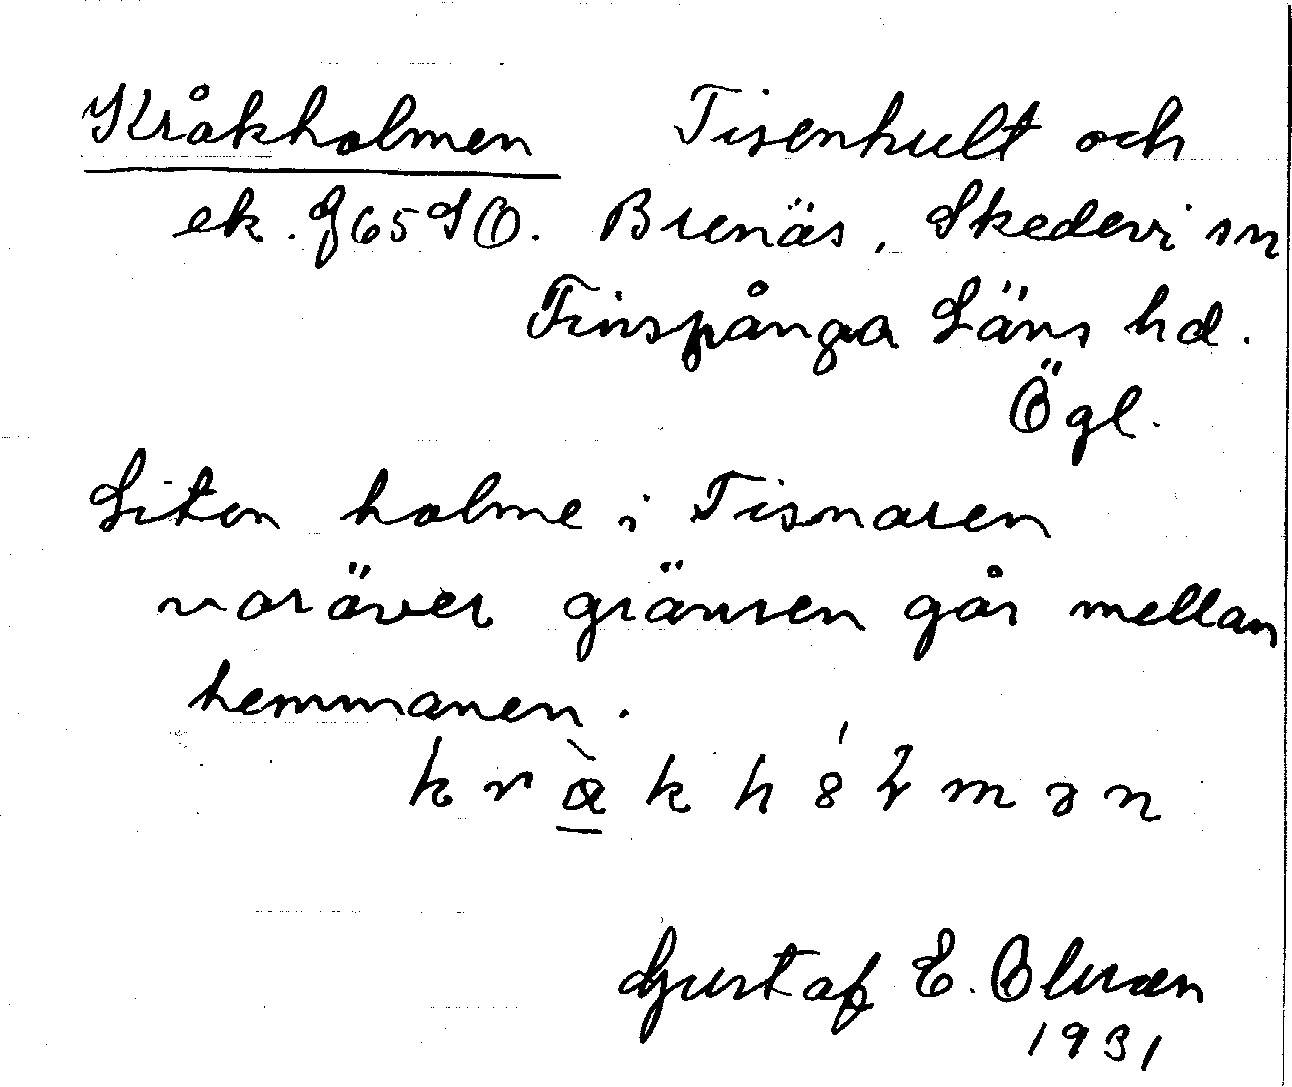 Kråkholmen Tisenhult och
ek. 965 SO. Brenäs, Skedevi sn
Finspånga Läns hd.
Ögl.
Liten holme i Tisnaren
varöver gränsen går mellan
hemmanen.
Gustaf E. Bluren
1931